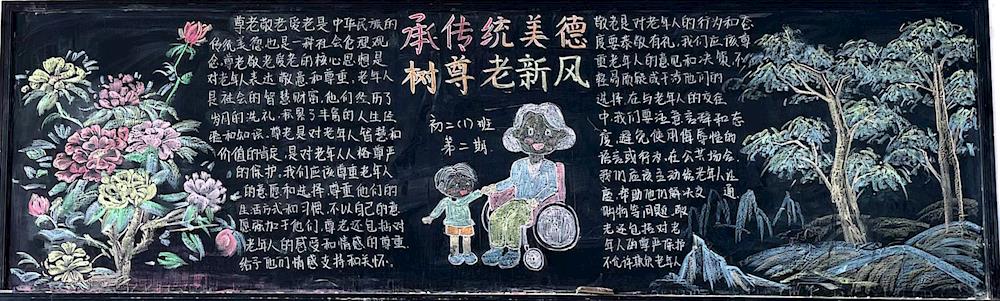 承传统美德
树尊老新风
初二(1)班
第二期
尊老敬老爱老是中华民族的
传统美德也是一种社会伦理观
念.尊老敬老爱老的核心思想是
对老年人表达敬意和尊重.老年人
是社会的智慧财富.他们经历了
岁月的洗礼.积累了丰富的人生经
验和知识.尊老是对老年人智慧和
价值的肯定.是对老年人人格尊严
的保护.我们应该尊重老年人
的意愿和选择尊重他们的
生活方式和习惯.不以自己的意
愿强加于他们.尊老还包括对
老年人的感受和情感的尊重.
给予他们情感支持和关怀.
敬老是对老年人的行为和态
度要恭敬有礼.我们应该尊
重老年人的意见和决策.不
轻易质疑或干方他们的
选择.在与老年人的交往
中.我们要注意言辞和态
度.避免使用侮辱性的
语言或行为.在公共场合.
我们应该主动给老年人让
座.帮助他们解决交通
购物等问题.敬
老还包括对老
年人的尊严保护
不允许欺负老年人